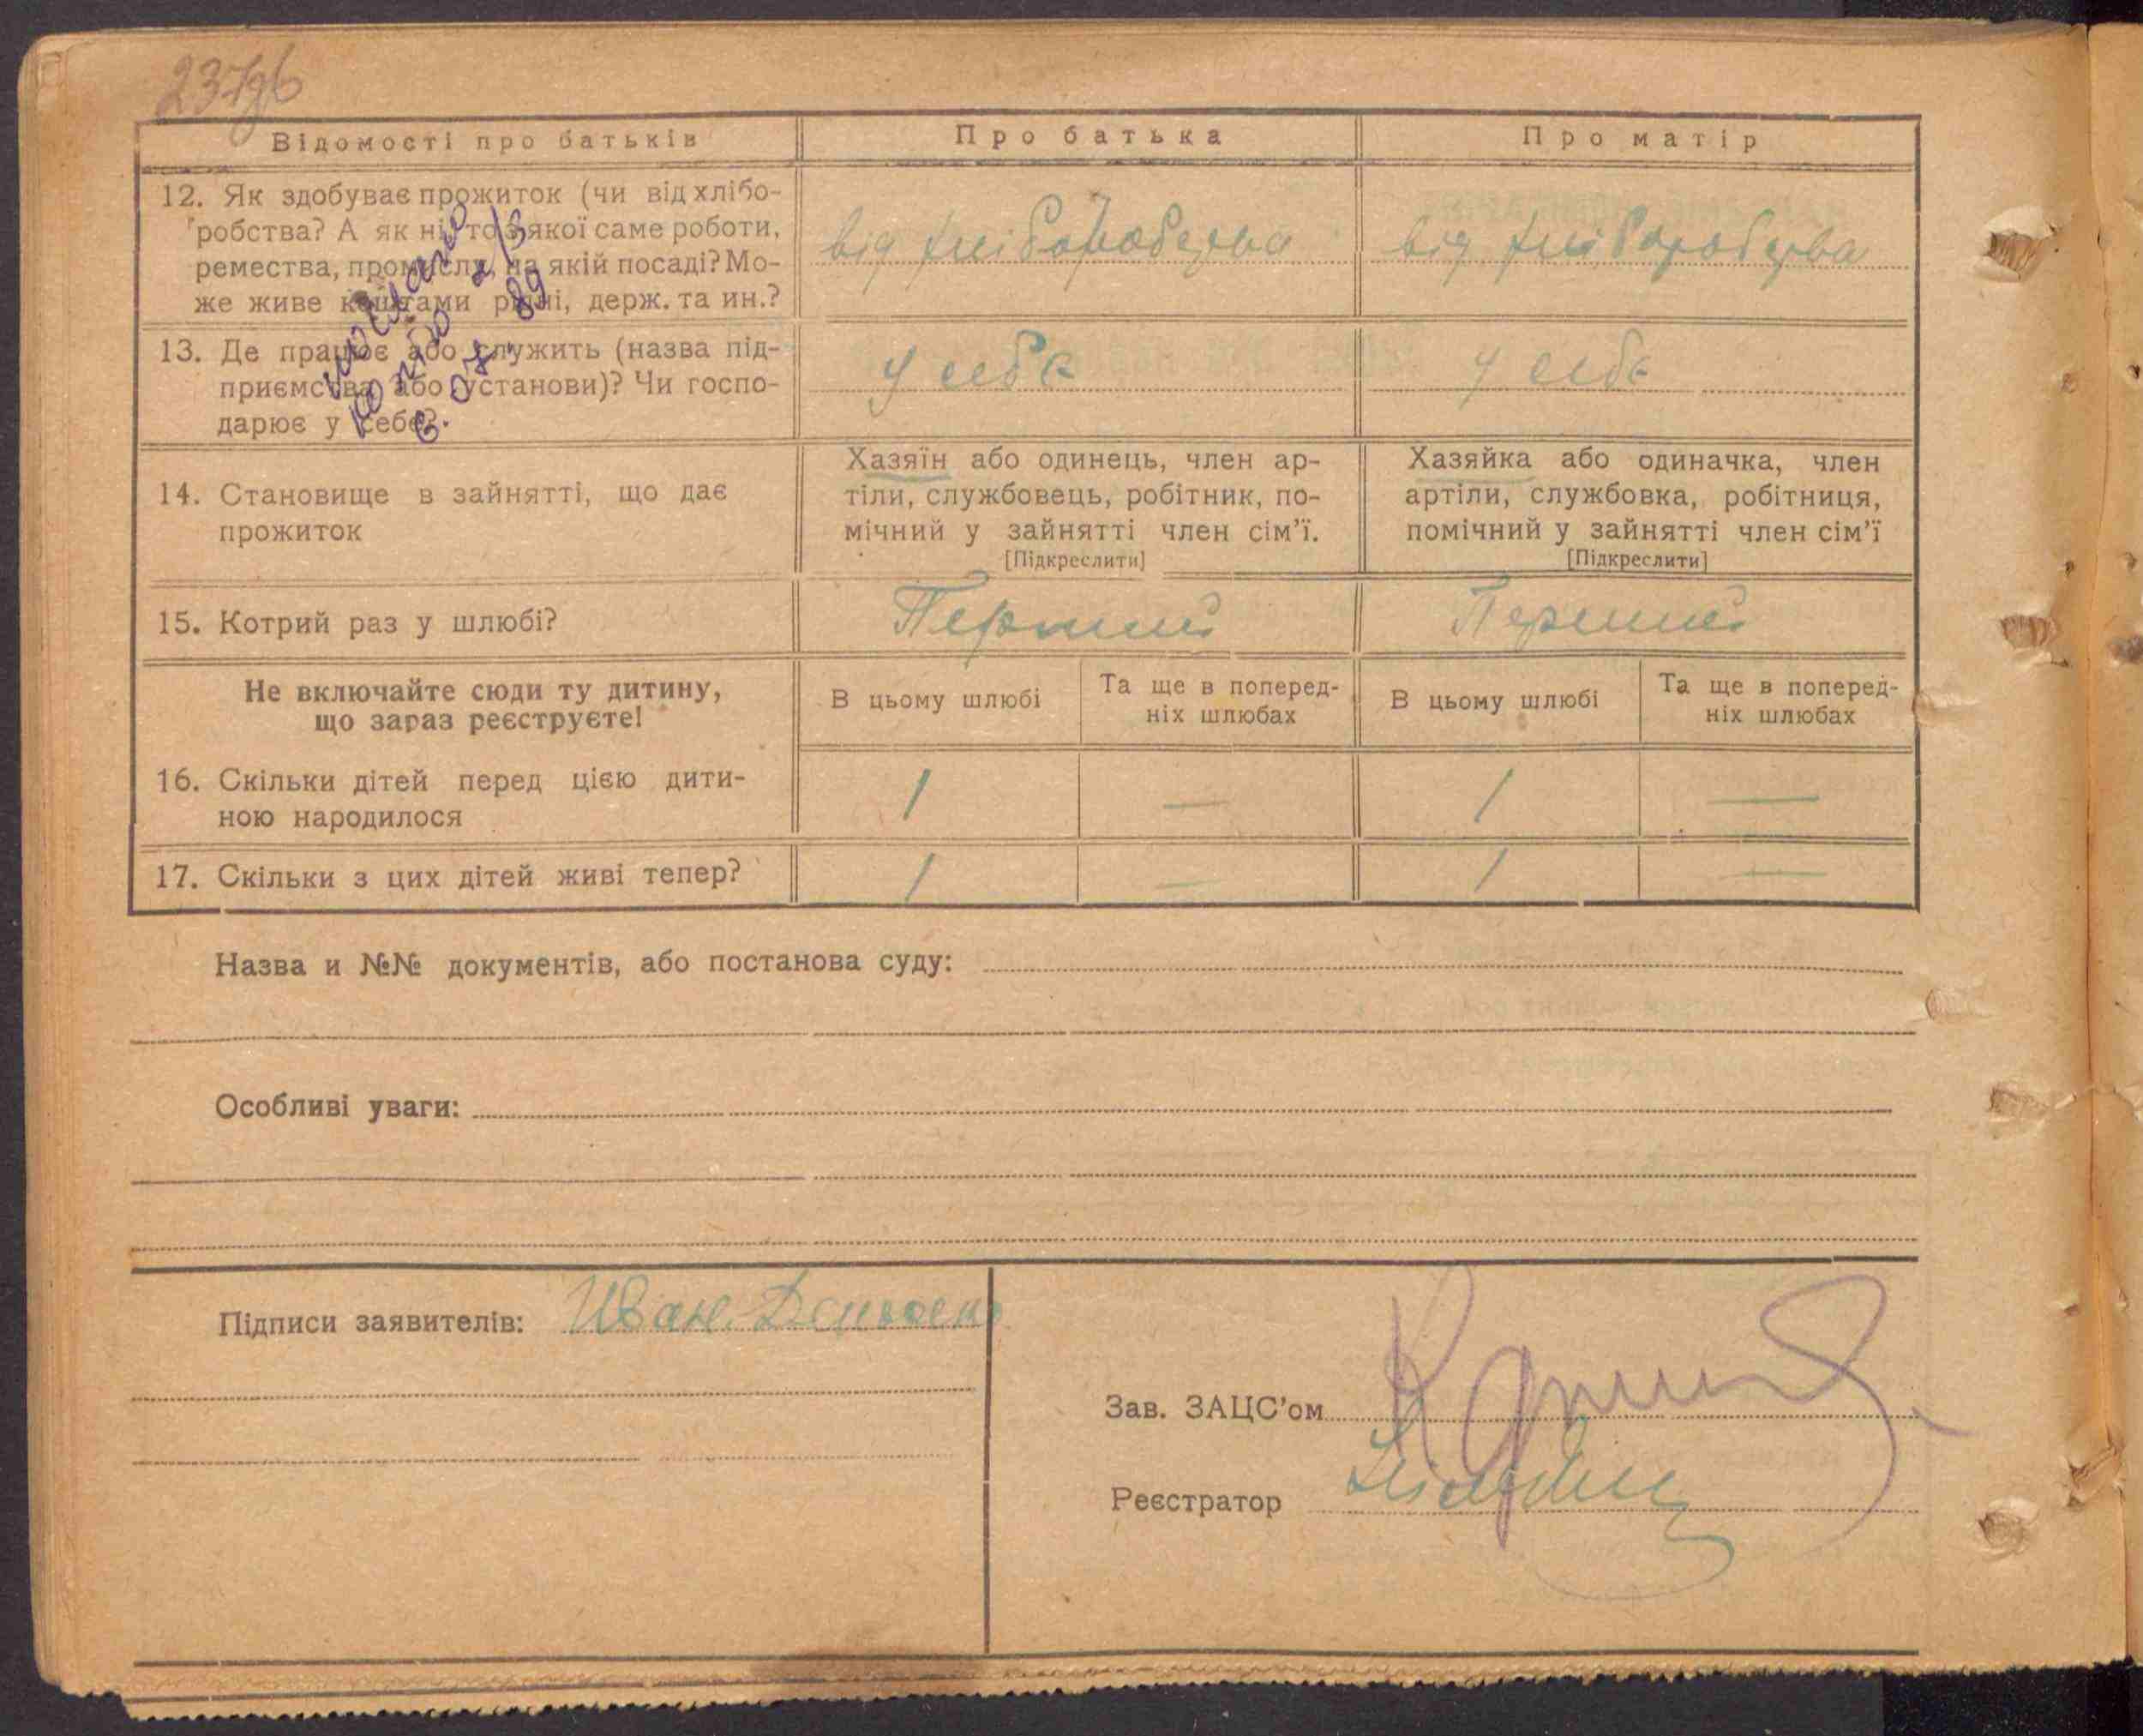 Відомості про батьків
Про батька
Про матір
12. Як здобуває прожиток (чи від хлібо-
робства? А як ні, то з якої саме роботи,
ремества, промислу, на якій посаді? Мо-
же живе коштами рідні, держ. та ин.?
від хліборобства
від хліборобства
13. Де працює або служить (назва під-
приємства або установи)? Чи госпо-
дарює у себе?
у себе
у себе
14. Становище в зайнятті, що дає
прожиток
Хазяїн або одинець, член ар-
тіли, службовець, робітник, по-
мічний у зайнятті член сім’ї.
[Підкреслити]
Хазяйка або одиначка, член
артіли, службовка, робітниця,
помічний у зайнятті член сім’ї
[Підкреслити]
15. Котрий раз у шлюбі?
Перший
Перший
Не включайте сюди ту дитину,
що зараз реєструєте!
В цьому шлюбі
Та ще в поперед-
ніх шлюбах
В цьому шлюбі
Та ще в поперед-
ніх шлюбах
16. Скільки дітей перед цією дити-
ною народилося
1
—
1
—
17. Скільки з цих дітей живі тепер?
1
—
1
—
Назва и №№ документів, або постанова суду:
Особливі уваги:
Підписи заявителів: Иван
Зав. ЗАЦС’ом
Реєстратор